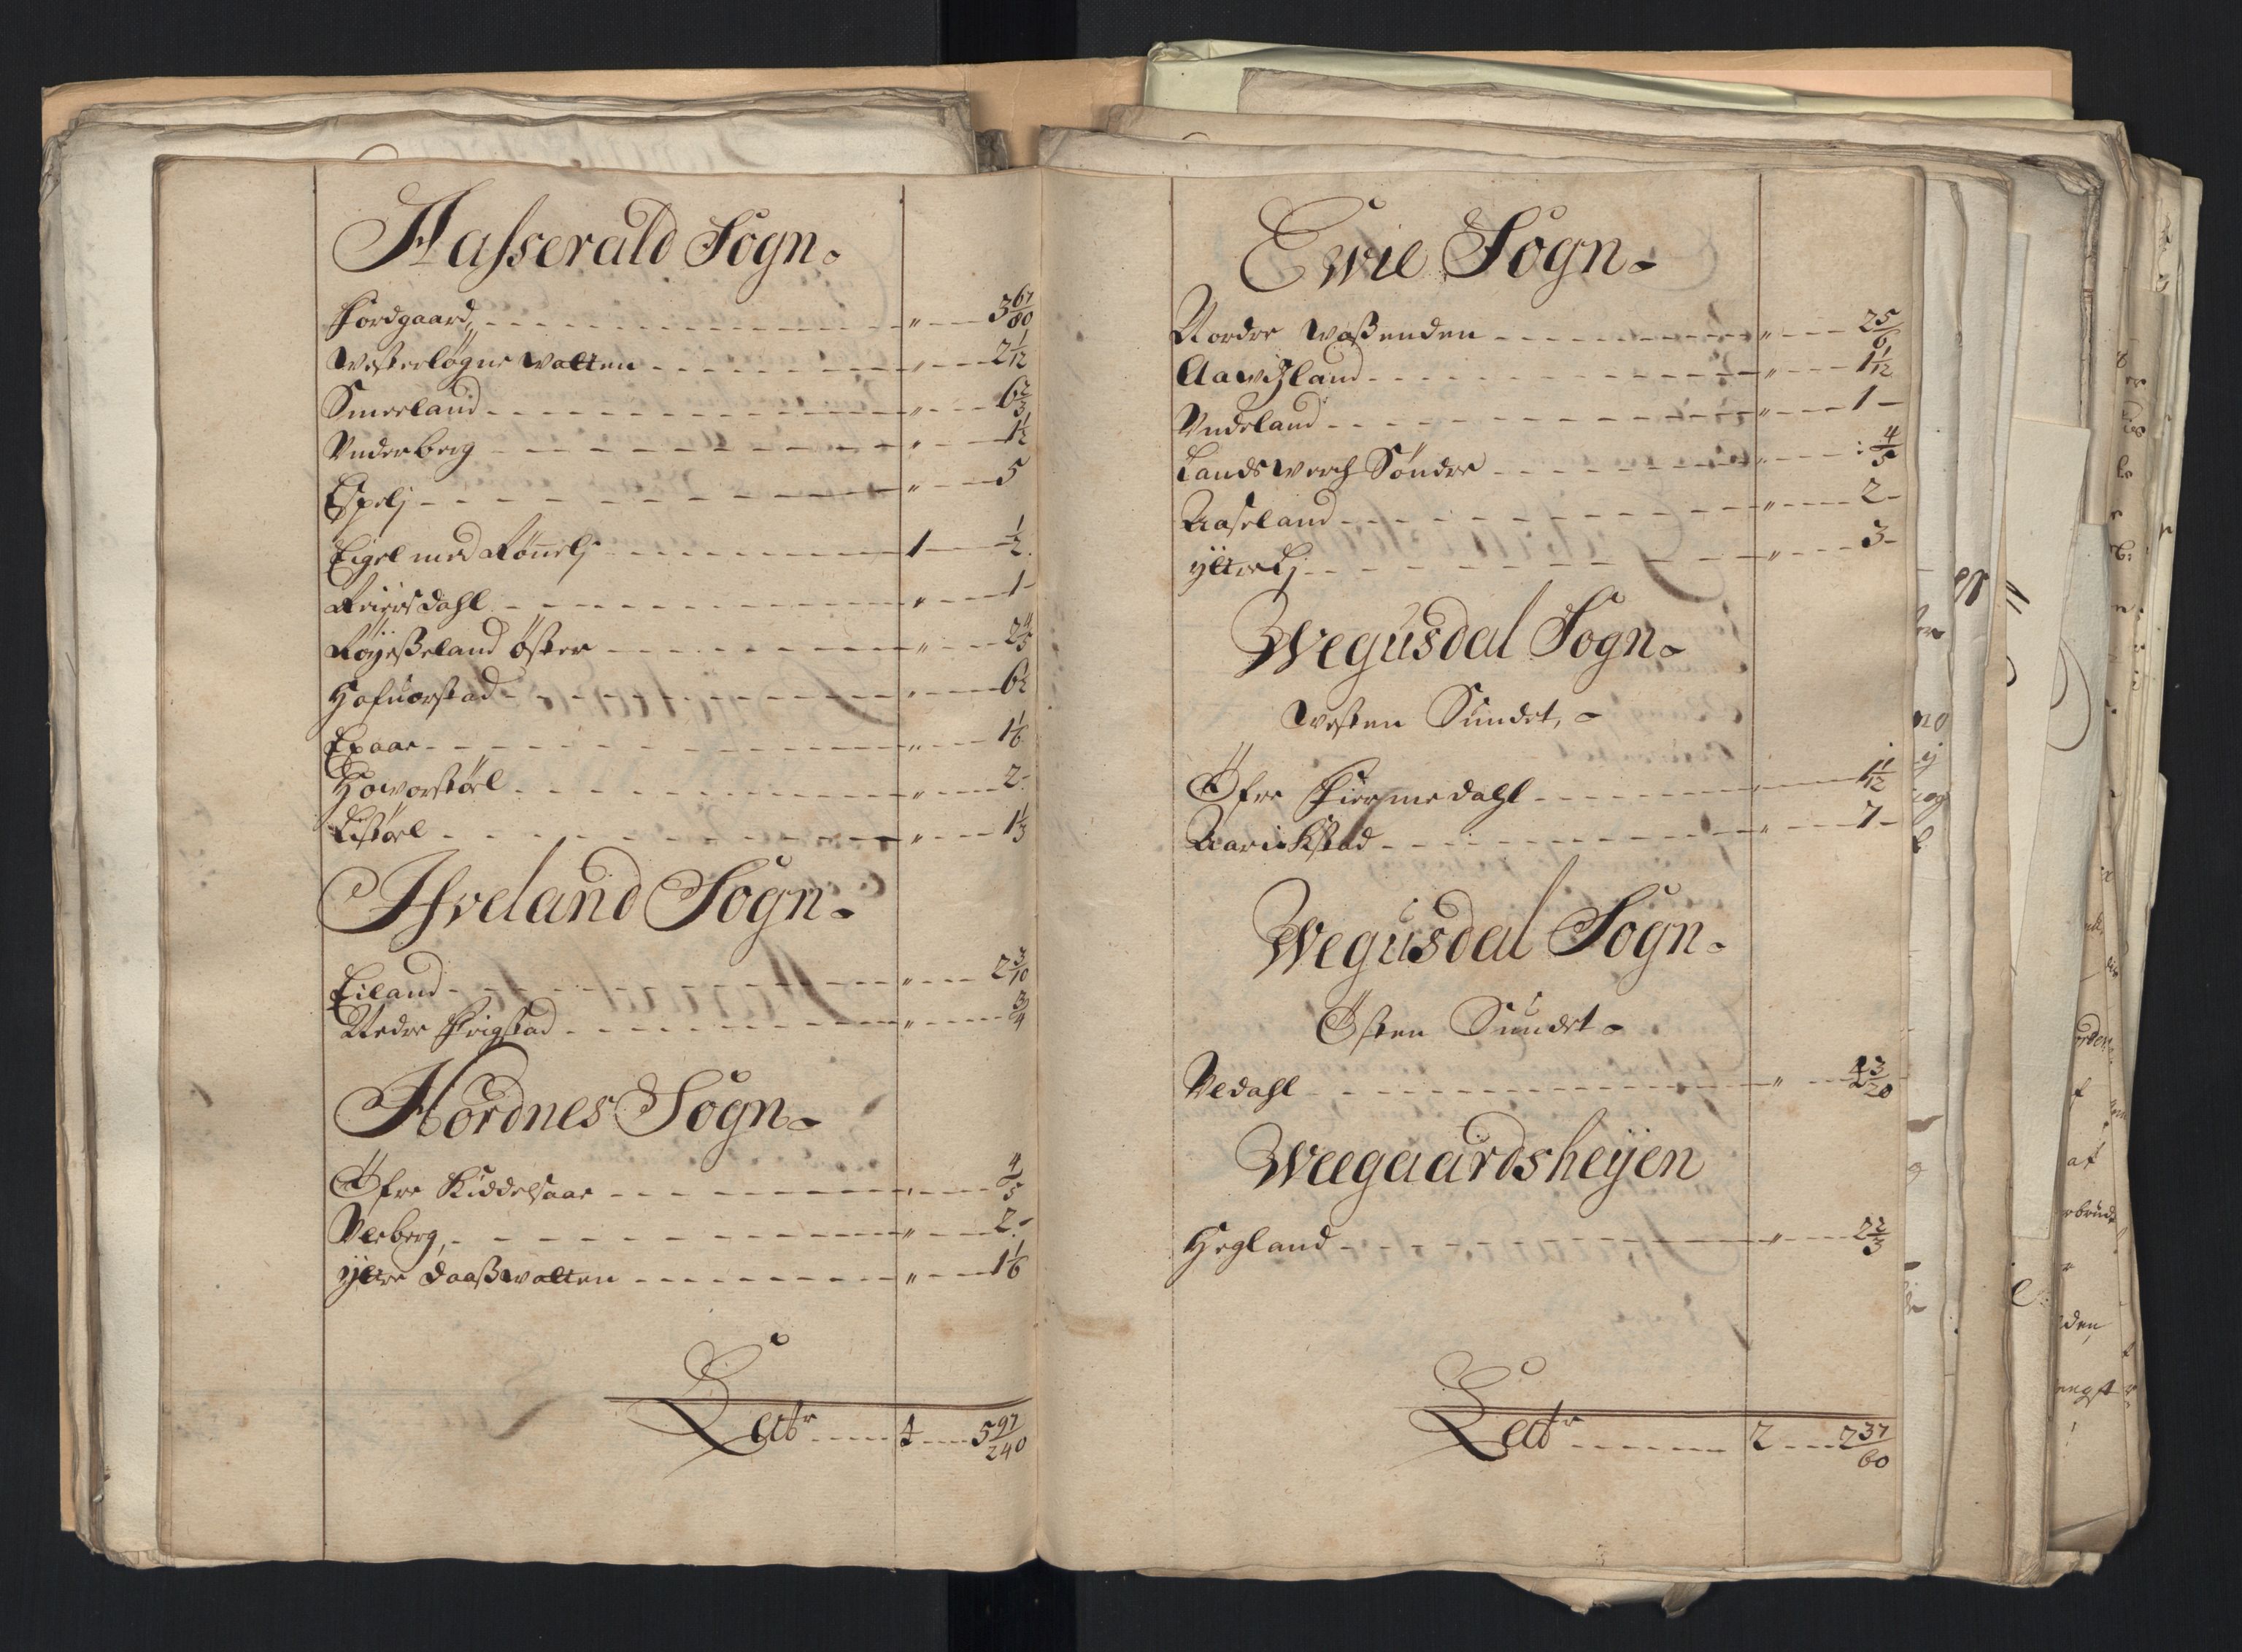 Aasserald Sogn.
Fordgaard, „ 3 67/80
Westerløgne Watten „ 2 1/12
Smeeland „ 6 2/3
Underberg „ 1 1/2
Espelj „ 5
Eigel med Rönnelj 1 1/2
Reiersdahl „ 1 -
Röijeßeland Öster „ 2 4/5
Hafuorstad „ 6 1/2
Exaae „ 1 1/6
Howorstöel „ 2 -
Listöel „ 1 1/3
Ifveland Sogn.
Eiland „ 2 3/10
Nedre Frigstad „ 3/4
Hordnes Sogn.
Öfre Kiddelsaae „ 4/5
Uleberg, „ 2 -
Ÿttre Daaßwatten „ 1 1/6
Latr 4 5 97/240
Ewie Sogn.
Nordre Waßenden „ 2 5/6
Aawisland „ 1 1/12
Undeland „ 1 -
Landswerch Söndre „ 4/5
Aaseland „ 2 -
ÿttre Lj „ 3 -
Wegusdal Sogn.
Westen Sundet,
Öfre Fiermedahl „ 1 1/12
Aarikstad „ 7 -
Wegusdal Sogn.
Östen Sundet
Uldahl „ 4 3/20
Weegaardsheijen
Hegland „ 2 2/3
Latr 2 2 37/60